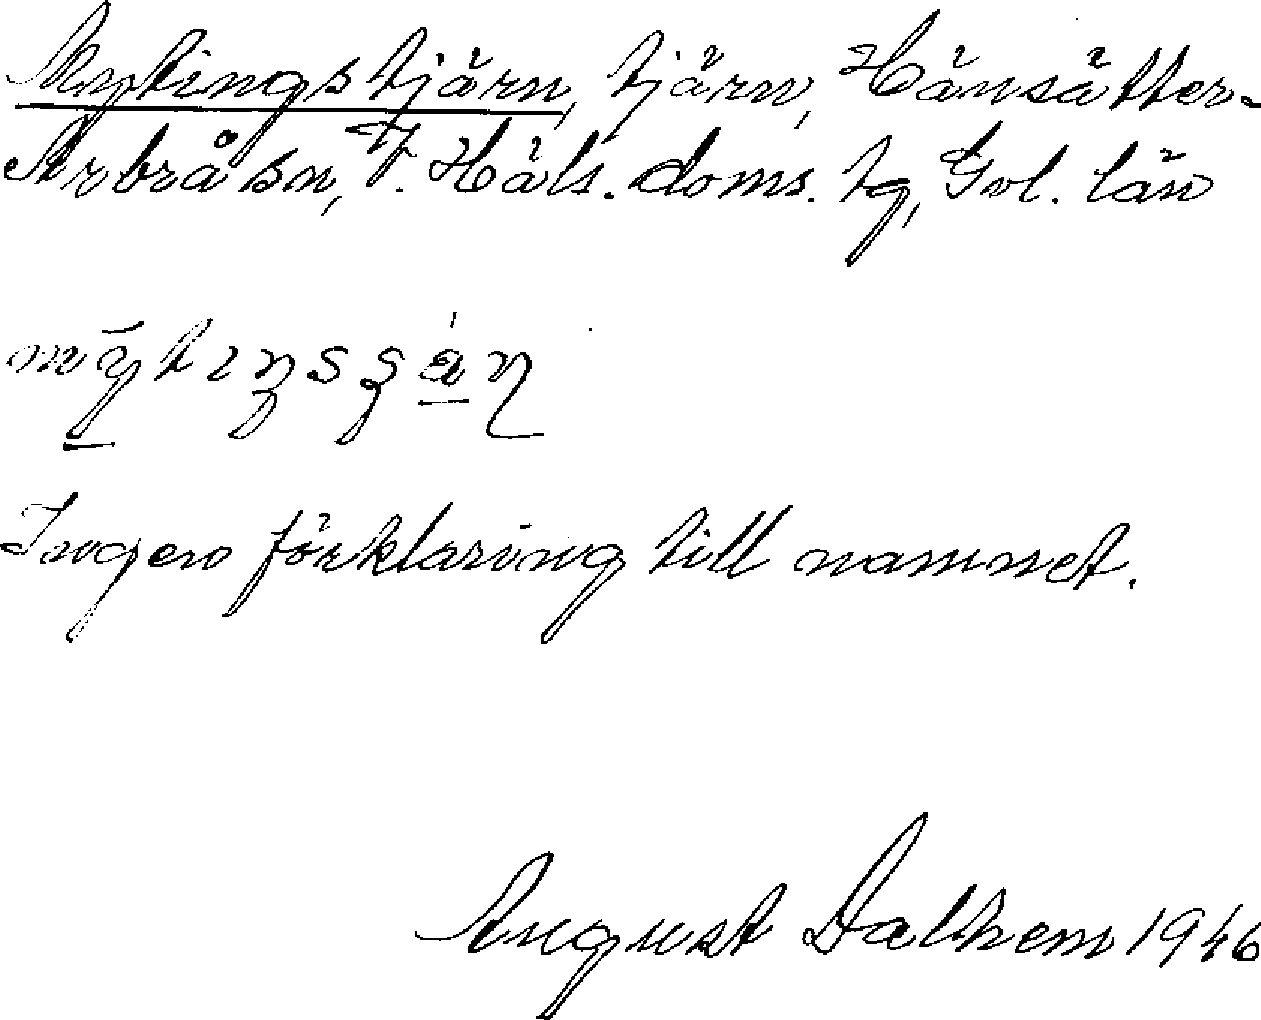 Mytingstjärn, tjärn, Hänsätter-
Arbrå sn, V. Häls. doms. tg, Gvl. län
Ingen förklaring till namnet.
August Dalhem 1946